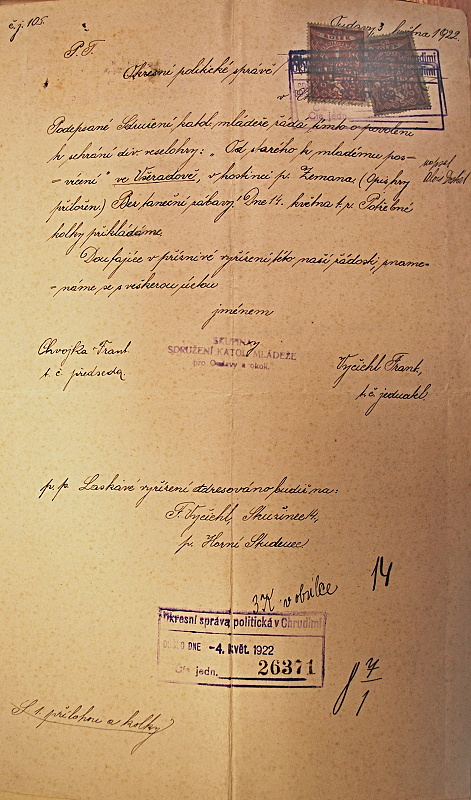 č.j. 105.
3. května 1922.
P. T.
Okresní politické správě
v
Podepsané Sdružení katol. mládeže žádá tímto o povolení
k sehrání div. veselohry: „Od starého k mladému pos-
-vícení" ve Všeradově, v hostinci p. Zemana. (Opis hry
napsal
přiložen.) Bez taneční zábavy! Dne 14. května t.r. Potřebné
kolky přikládáme.
Doufajíce v příznivé vyřízení této naší žádosti, zname-
-náme se s veškerou úctou
jménem
SKUPINA
SDRUŽENÍ KATOL. MLÁDEŽE
pro a okolí.
Chvojka Frant.
t. č. předseda.
Vyčichl Frant.,
t. č. jednatel.
p.p. Laskavé vyřízení adresováno budiž na:
F. Vyčichl,
p. Horní Studenec
3 K v obálce
14
Okresní správa politická v Chrudimi
DOŠLO DNE -4. květ. 1922
Čís. jedn. 26371
7
1
S 1 přílohou a kolky